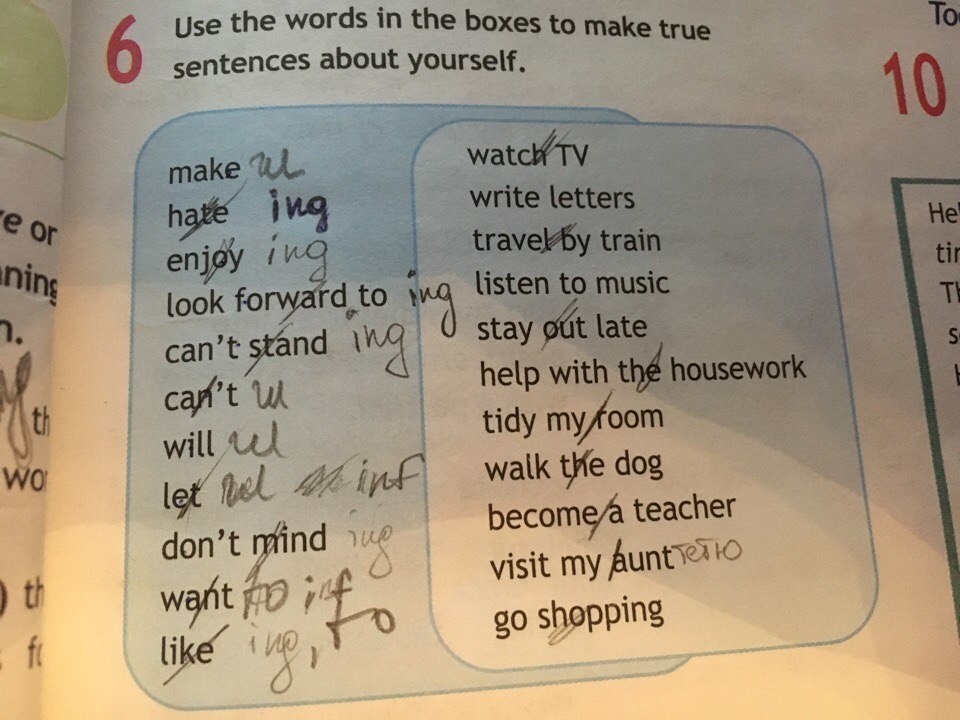 6 Use the words in the boxes to make true
sentences about yourself.
make
hate ing
enjoy ing
look forward to ing
can't stand ing
can't
will
let inf
don't mind ing
want to inf
like ing, to
watch TV
write letters
travel by train
listen to music
stay out late
help with the housework
tidy my room
walk the dog
become a teacher
visit my aunt тётю
go shopping
10
To
He